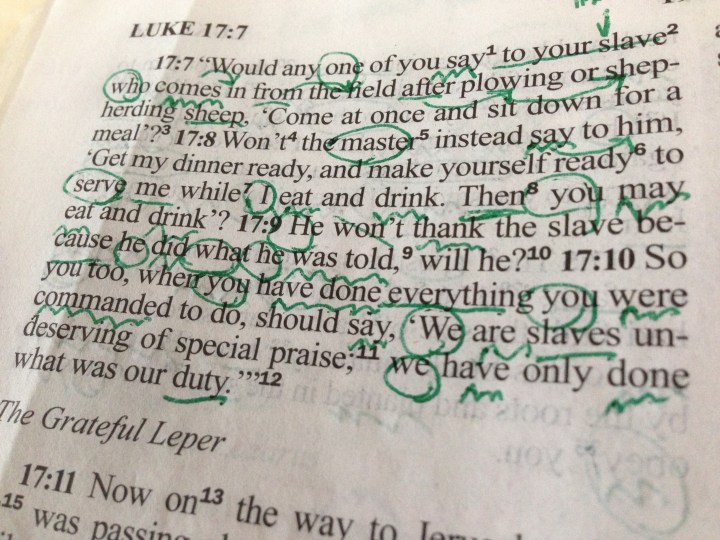 LUKE 17:7
17:7 “Would any one of you say¹ to your slave²
who comes in from the field after plowing or shep-
herding sheep, ‘Come at once and sit down for a
meal’?³ 17:8 Won’t⁴ the master⁵ instead say to him,
‘Get my dinner ready, and make yourself ready⁶ to
serve me while⁷ I eat and drink. Then⁸ you may
eat and drink’? 17:9 He won’t thank the slave be-
cause he did what he was told,⁹ will he?¹⁰ 17:10 So
you too, when you have done everything you were
commanded to do, should say, ‘We are slaves un-
deserving of special praise;¹¹ we have only done
what was our duty.’”¹²
The Grateful Leper
17:11 Now on¹³ the way to
15 was